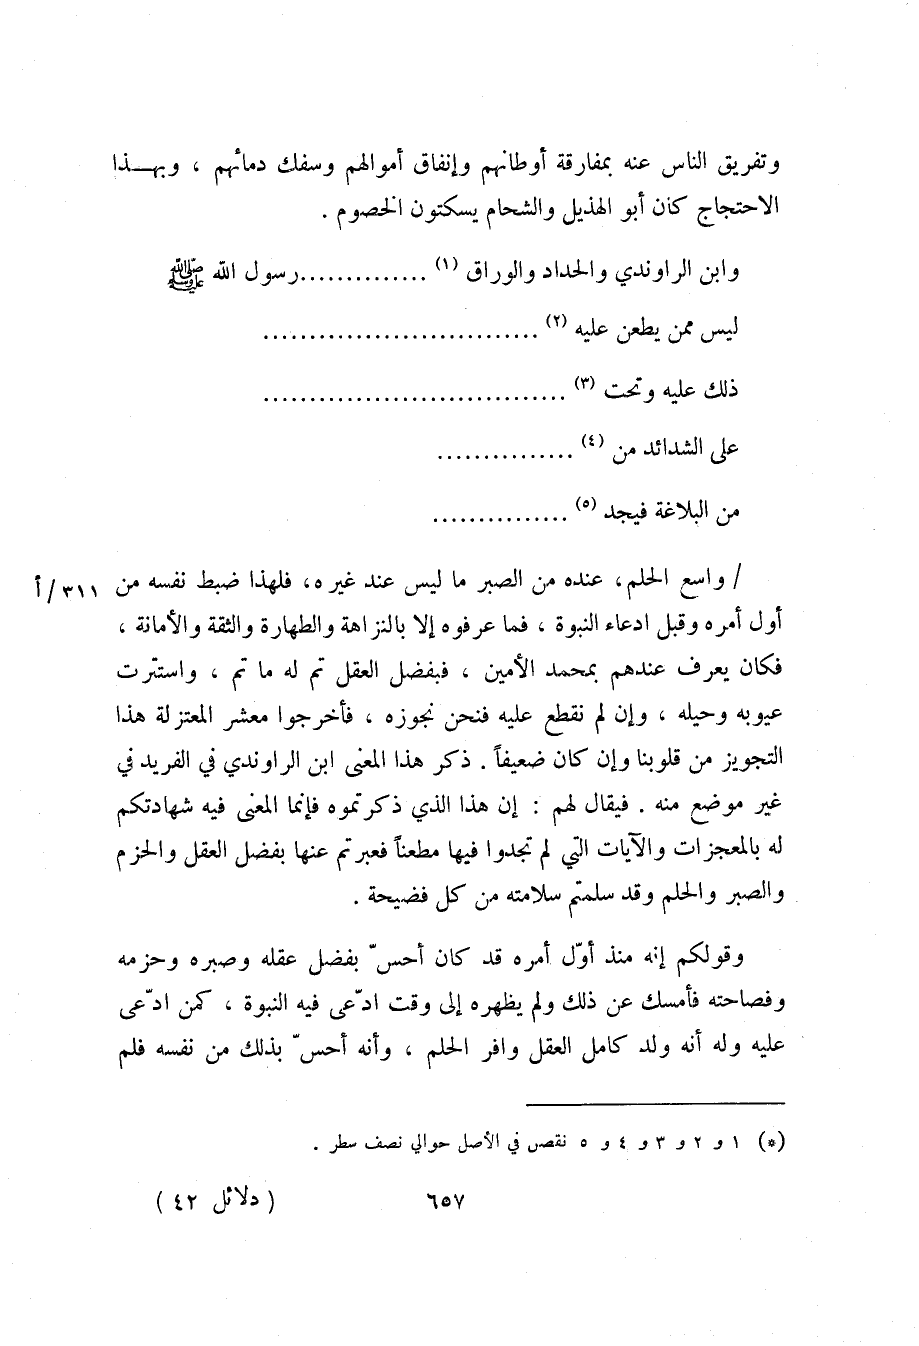 وتفريق الناس عنه بمفارقة أوطانهم وإنفاق أموالهم وسفك دمائهم ، وبهـــذا
الاحتجاج كان أبو الهذيل والشحام يسكتون الخصوم .
وابن الراوندي والحداد والوراق (١) ..............رسول الله ﷺ
ليس ممن يطعن عليه (٢) ..............................
ذلك عليه وتحت (٣) .................................
على الشدائد من (٤) ...............
من البلاغة فيجد (٥) ...............
/ واسع الحلم، عنده من الصبر ما ليس عند غيره، فلهذا ضبط نفسه من ٣١١/أ
أول أمره وقبل ادعاء النبوة ، فما عرفوه إلا بالنزاهة والطهارة والثقة والأمانة ،
فكان يعرف عندهم بمحمد الأمين ، فبفضل العقل تم له ما تم ، واستترت
عيوبه وحيله ، وإن لم نقطع عليه فنحن نجوزه ، فأخرجوا معشر المعتزلة هذا
التجويز من قلوبنا وإن كان ضعيفاً . ذكر هذا المعنى ابن الراوندي في الفريد في
غير موضع منه . فيقال لهم : إن هذا الذي ذكرتموه فإنما المعنى فيه شهادتكم
له بالمعجزات والآيات التي لم تجدوا فيها مطعناً فعبرتم عنها بفضل العقل والحزم
والصبر والحلم وقد سلمتم سلامته من كل فضيحة .
وقولكم إنه منذ أوّل أمره قد كان أحسّ بفضل عقله وصبره وحزمه
وفصاحته فأمسك عن ذلك ولم يظهره إلى وقت ادّعى فيه النبوة ، كمن ادّعى
عليه وله أنه ولد كامل العقل وافر الحلم ، وأنه أحسّ بذلك من نفسه فلم
(*) ١ و ٢ و ٣ و ٤ و ٥ نقص في الأصل حوالي نصف سطر .
٦٥٧ ( دلائل ٤٢ )